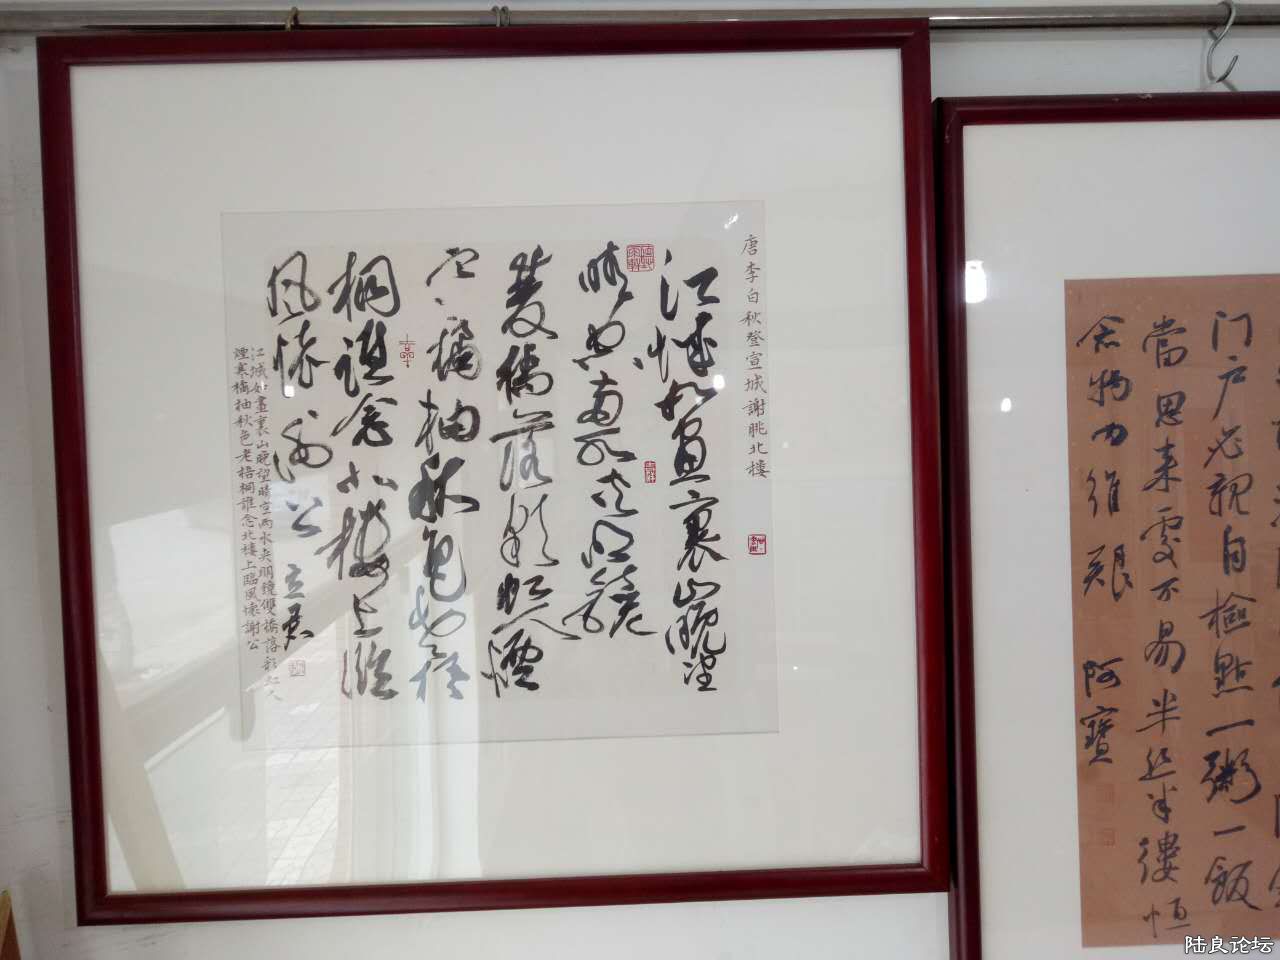 唐李白秋登宣城謝朓北楼
江城如畫裏山晚望
晴空兩水夹明鏡
雙橋落彩虹人煙
寒橘柚秋色老梧
桐誰念北樓上臨
風懷謝公
江城如畫裏山晚望晴空兩水夹明鏡雙橋落彩虹人
煙寒橘柚秋色老梧桐誰念北楼上臨風懷謝公
门户必親自檢點一粥一飯
當思来處不易半丝半缕恒
念物力维艱 阿寶
陆良论坛